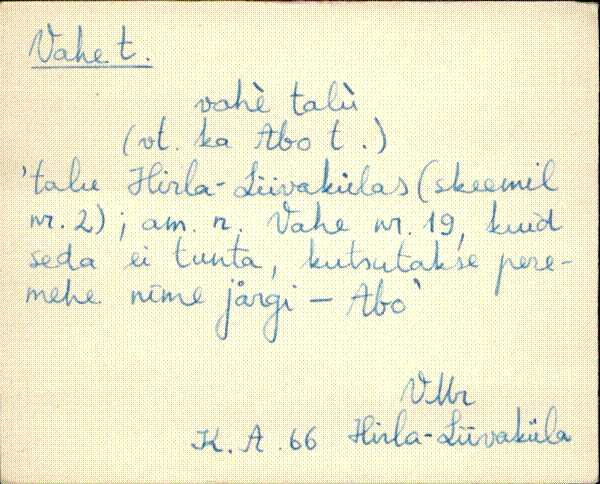 Vahe t.
vahè talù
(vt. ka Abo t.)
'talu Hirla-Liivakülas (skeemil
nr. 2); am. n. Vahe nr. 19, kuid
seda ei tunta, kutsutakse pere-
mehe nime järgi – Abo'
VMr
K. A. 66 Hirla-Liivaküla